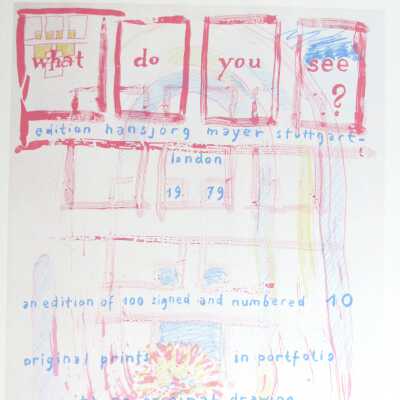 what do you see ?
edition hansjorg mayer stuttgart-
london
19 79
an edition of 100 signed and numbered 10
original prints in portfolio
original drawing